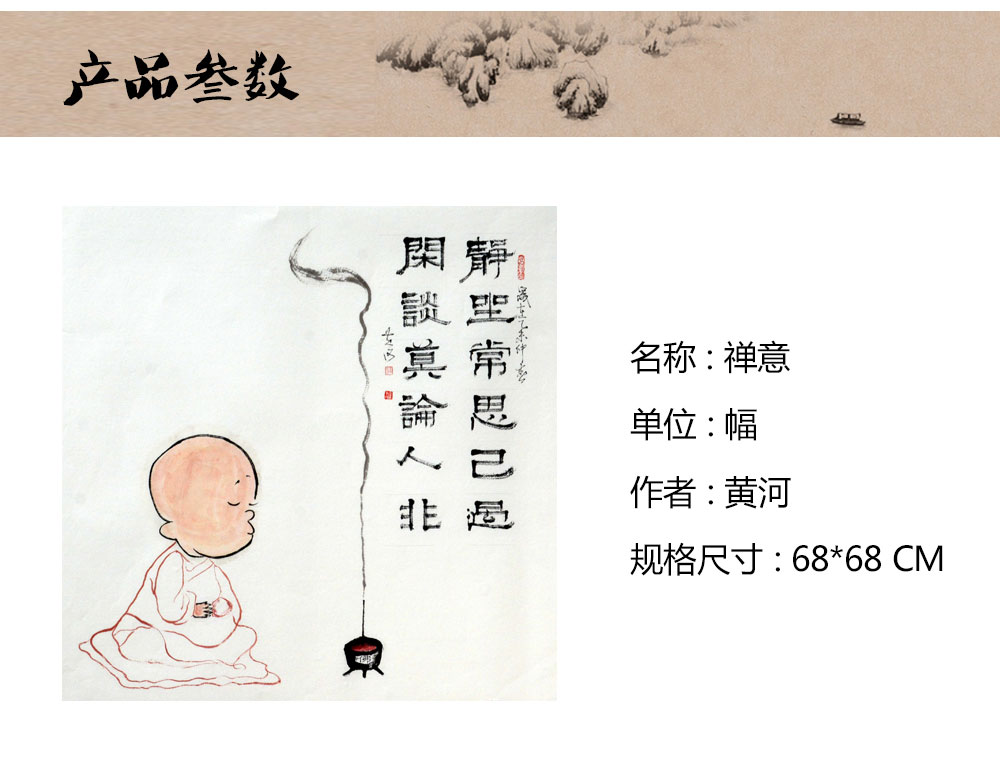 产品叁数
靜坐常思己過
閑談莫論人非
歲在乙未仲春
黄河
名称 : 禅意
单位 : 幅
作者 : 黄河
规格尺寸 : 68*68 CM